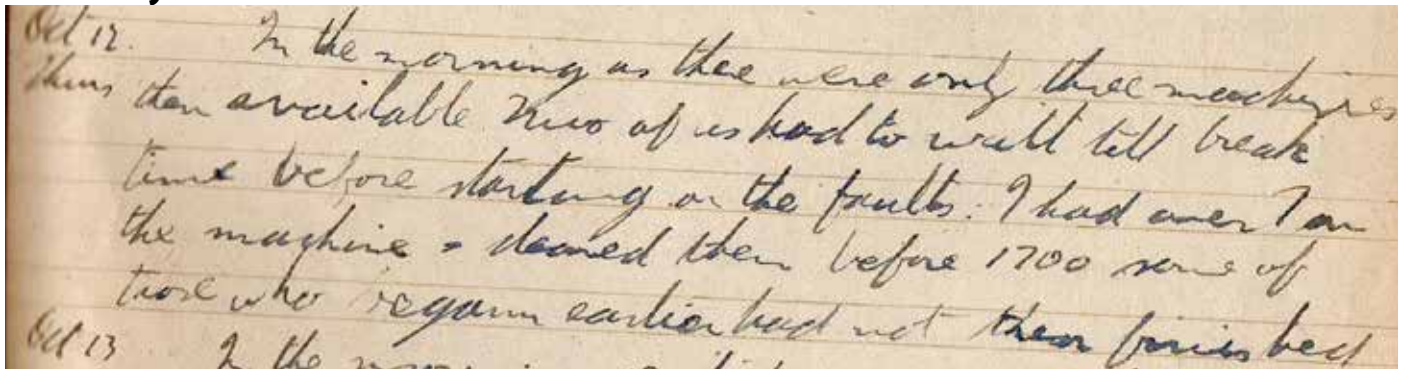 Oct 12. In the morning as there were only three machines
Thurs then available two of us had to wait till break
time before starting on the faults. I had over 7 on
the machine & cleared them before 1700 some of
those who began earlier had not then finished
Oct 13 In the